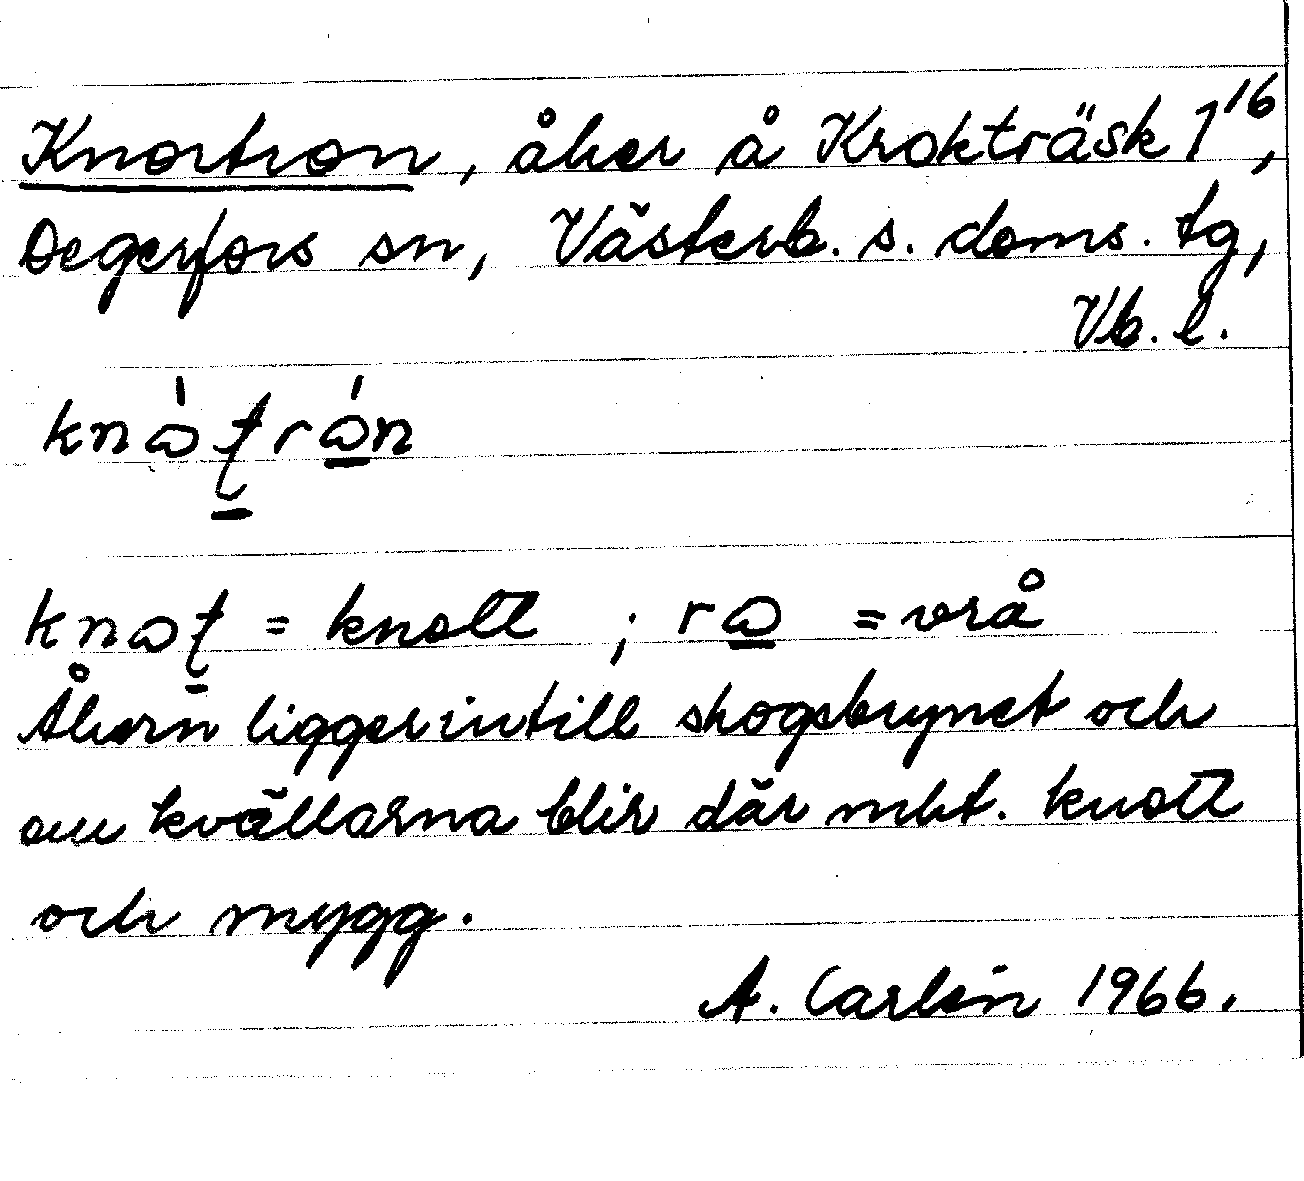 Knortron, åker å Krokträsk 1¹⁶,
Degerfors sn, Västerb. s. doms. tg,
Vb. l.
= knott ; = vrå
Åkern ligger intill skogsbrynet och
om kvällarna blir där mkt. knott
och mygg.
A. Carlén 1966.